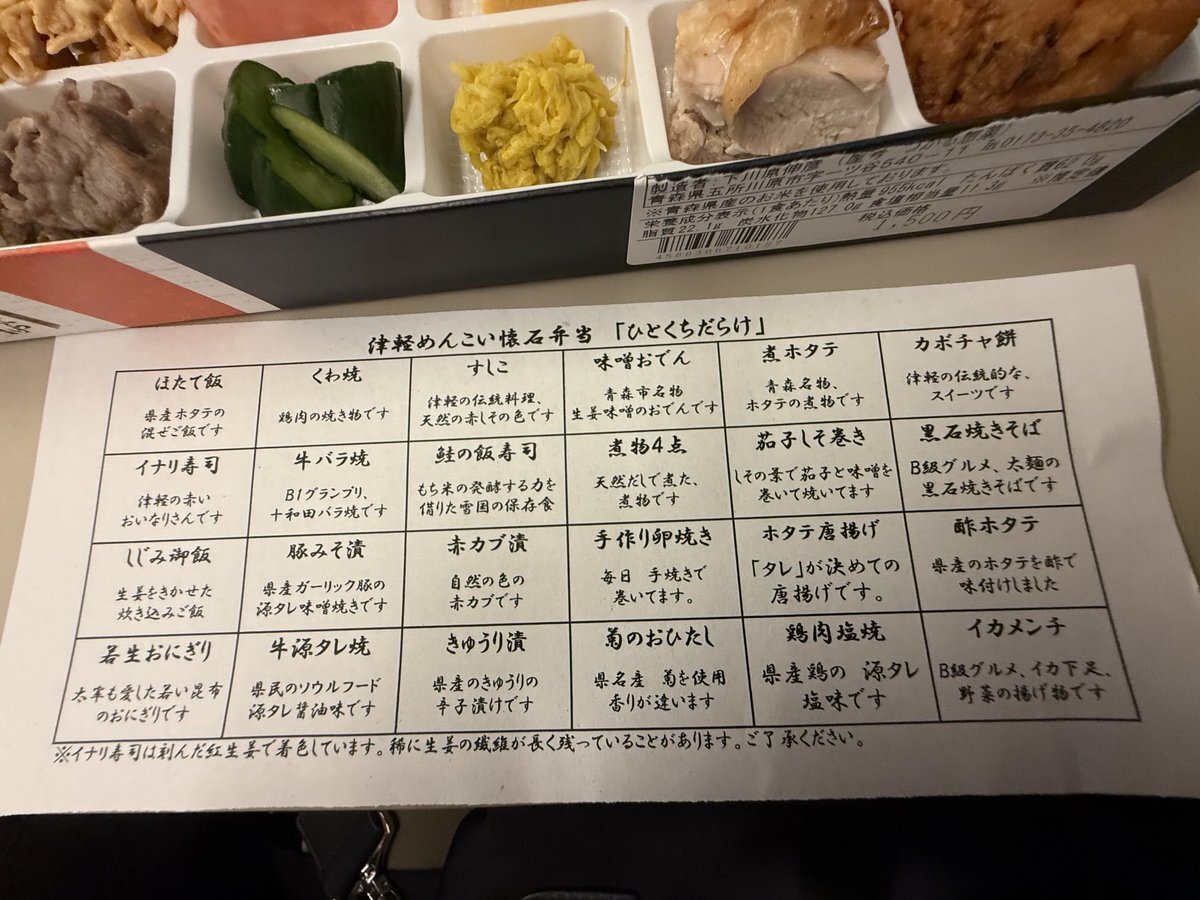 製造者:下川原伸彦
青森県五所川原市字一ツ谷540-11 ℡0173-35-4820
※青森県産のお米を使用しております。
栄養成分表示(1食あたり)熱量955kcal、たんぱく質
脂質22.1g 炭水化物127.0g 食塩相当量11.3g
税込価格
1,500円
津軽めんこい懐石弁当 「ひとくちだらけ」
ほたて飯
県産ホタテの
混ぜご飯です
くわ焼
鶏肉の焼き物です
すしこ
津軽の伝統料理、
天然の赤しその色です
味噌おでん
青森市名物
生姜味噌のおでんです
煮ホタテ
青森名物、
ホタテの煮物です
カボチャ餅
津軽の伝統的な、
スイーツです
イナリ寿司
津軽の赤い
おいなりさんです
牛バラ焼
B1グランプリ、
十和田バラ焼です
鮭の飯寿司
もち米の発酵する力を
借りた雪国の保存食
煮物4点
天然だしで煮た、
煮物です
茄子しそ巻き
しその葉で茄子と味噌を
巻いて焼いてます
黒石焼きそば
B級グルメ、太麺の
黒石焼きそばです
しじみ御飯
生姜をきかせた
炊き込みご飯
豚みそ漬
県産ガーリック豚の
源タレ味噌焼きです
赤カブ漬
自然の色の
赤カブです
手作り卵焼き
毎日 手焼きで
巻いてます。
ホタテ唐揚げ
「タレ」が決めての
唐揚げです。
酢ホタテ
県産のホタテを酢で
味付けしました
若生おにぎり
太宰も愛した若い昆布
のおにぎりです
牛源タレ焼
県民のソウルフード
源タレ醤油味です
きゅうり漬
県産のきゅうりの
辛子漬けです
菊のおひたし
県名産 菊を使用
香りが違います
鶏肉塩焼
県産鶏の 源タレ
塩味です
イカメンチ
B級グルメ、イカ下足、
野菜の揚げ物です
※イナリ寿司は刻んだ紅生姜で着色しています。稀に生姜の繊維が長く残っていることがあります。ご了承ください。